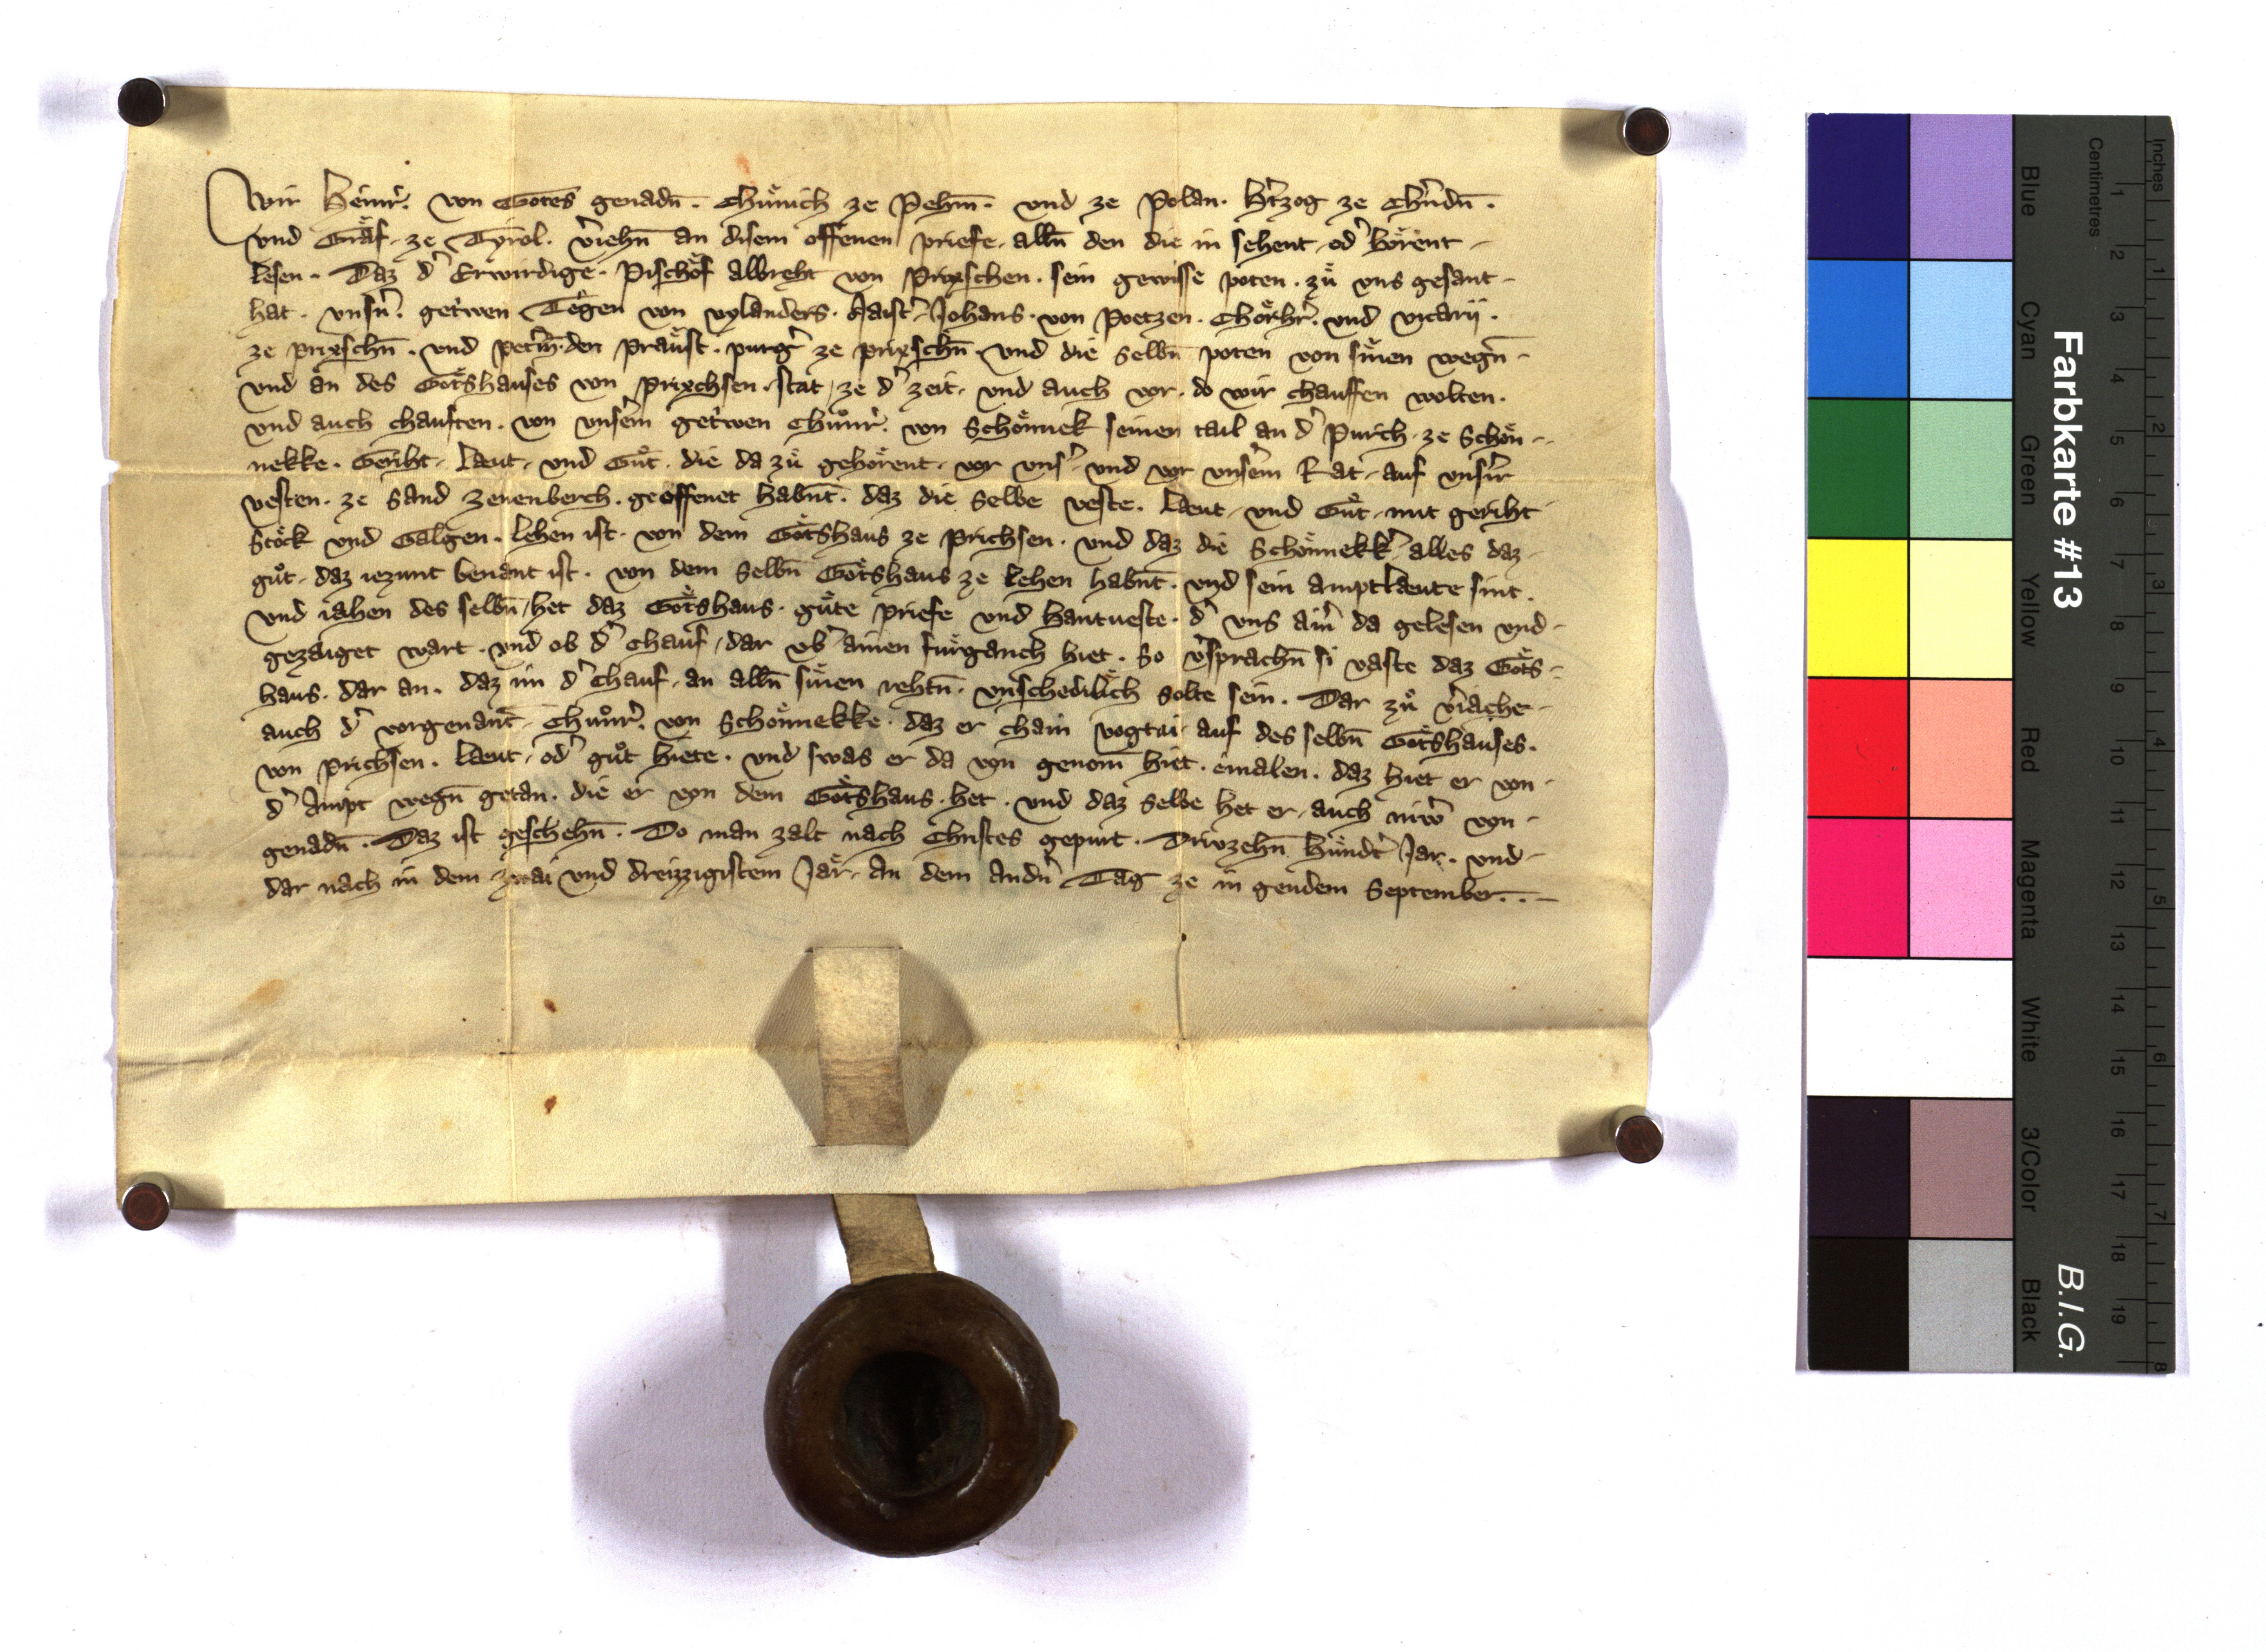 Wir Heinr̃. von Gotes genadn̄. Chuͤnich ze Pehm̄. und ze Polan. Hr̃zog ze Chr̃ndn̄.
und Graͤf. ze Tyrol. v̾iehn̄ an disem offenen priefe. alln̄ den die in sehent. od̾ hoͤrent
lesen. Daz d̾ Erwirdige. Pischof Albreht von Prixschen. sein gewisse poten. zuͤ uns gesant
hat. unsn̾. getrͥwen Tegen von vylanders. Maist̾ Johans. von Poetzen. Chorhr̾. und vicarii.
ze prixschn̄. und Petm̄. den Praust. purg̾ ze prixschn̄. und die selbn̄ poten von sinen wegn̄
und an des Gotshauses von Prixchsen. stat. ze d̾ zeit. und auch vor. do wir chauffen wolten.
und auch chauften. von unserm getrͥwen Chuͦnr̾. von Schoͤnnek seinen tail an d̾ Purch. ze Schoͤn-
nekke. Geriht. Laeut. und Guͦt. die da zuͤ gehoͤrent. vor uns̾. und vor unserm Rat. auf unsr̾r
vesten. ze Sand Zenenberch. geoffenet habnt̄. daz die selbe veste. Laeut. und Guͦt. mit geriht
Stock und Galgen. Lehen ist. von dem Gotshaus ze Prichsen. und daz die Schoͤnnekk̾. alles daz
guͦt. daz iezunt benant ist. von dem selbn̄ Gotshaus ze Lehen habnt̄. und sein amptlaeute sint.
und iahen des selbn̄. het daz Gotshaus. guͤte priefe und hantveste. d̾ uns ain̾ da gelesen und
gezaiget wart. und ob d̾ chauf. dar ub̾ ainen fuͤrganch hiet. So v̾sprachn̄ si vaste daz Gots-
haus. dar an. daz im d̾ Chauf. an alln̄ sinen rehtn̄. unschedilich solte sein. Dar zuͤ v̾iache
auch d̾ vorgenant̄. Chuͦnr̾. von Schoͤnnekke. daz er chain vogtai. auf des selbn̄ Gotshauses.
von prichsen. Laeut. od̾ guͦt hiete. und swas er da von genom̄ hiet. einalen. daz hiet er von
d̾ ampt wegn̄ getan. die er von dem Gotshaus. het. und daz selbe het er. auch niw̾ von
genadn̄. Daz ist geschehn̄. Do man zalt nach Christes gepurt. Drivzehn̄ hundt̾ Jar. und
dar nach in dem zwai und dreizzigistem Jar. an dem andn̾ Tag ze in gendem September.
Farbkarte #13
B.I.G.
Inches
1 2 3 4 5 6 7 8
Centimetres
1 2 3 4 5 6 7 8 9 10 11 12 13 14 15 16 17 18 19
Blue
Cyan
Green
Yellow
Red
Magenta
White
3/Color
Black